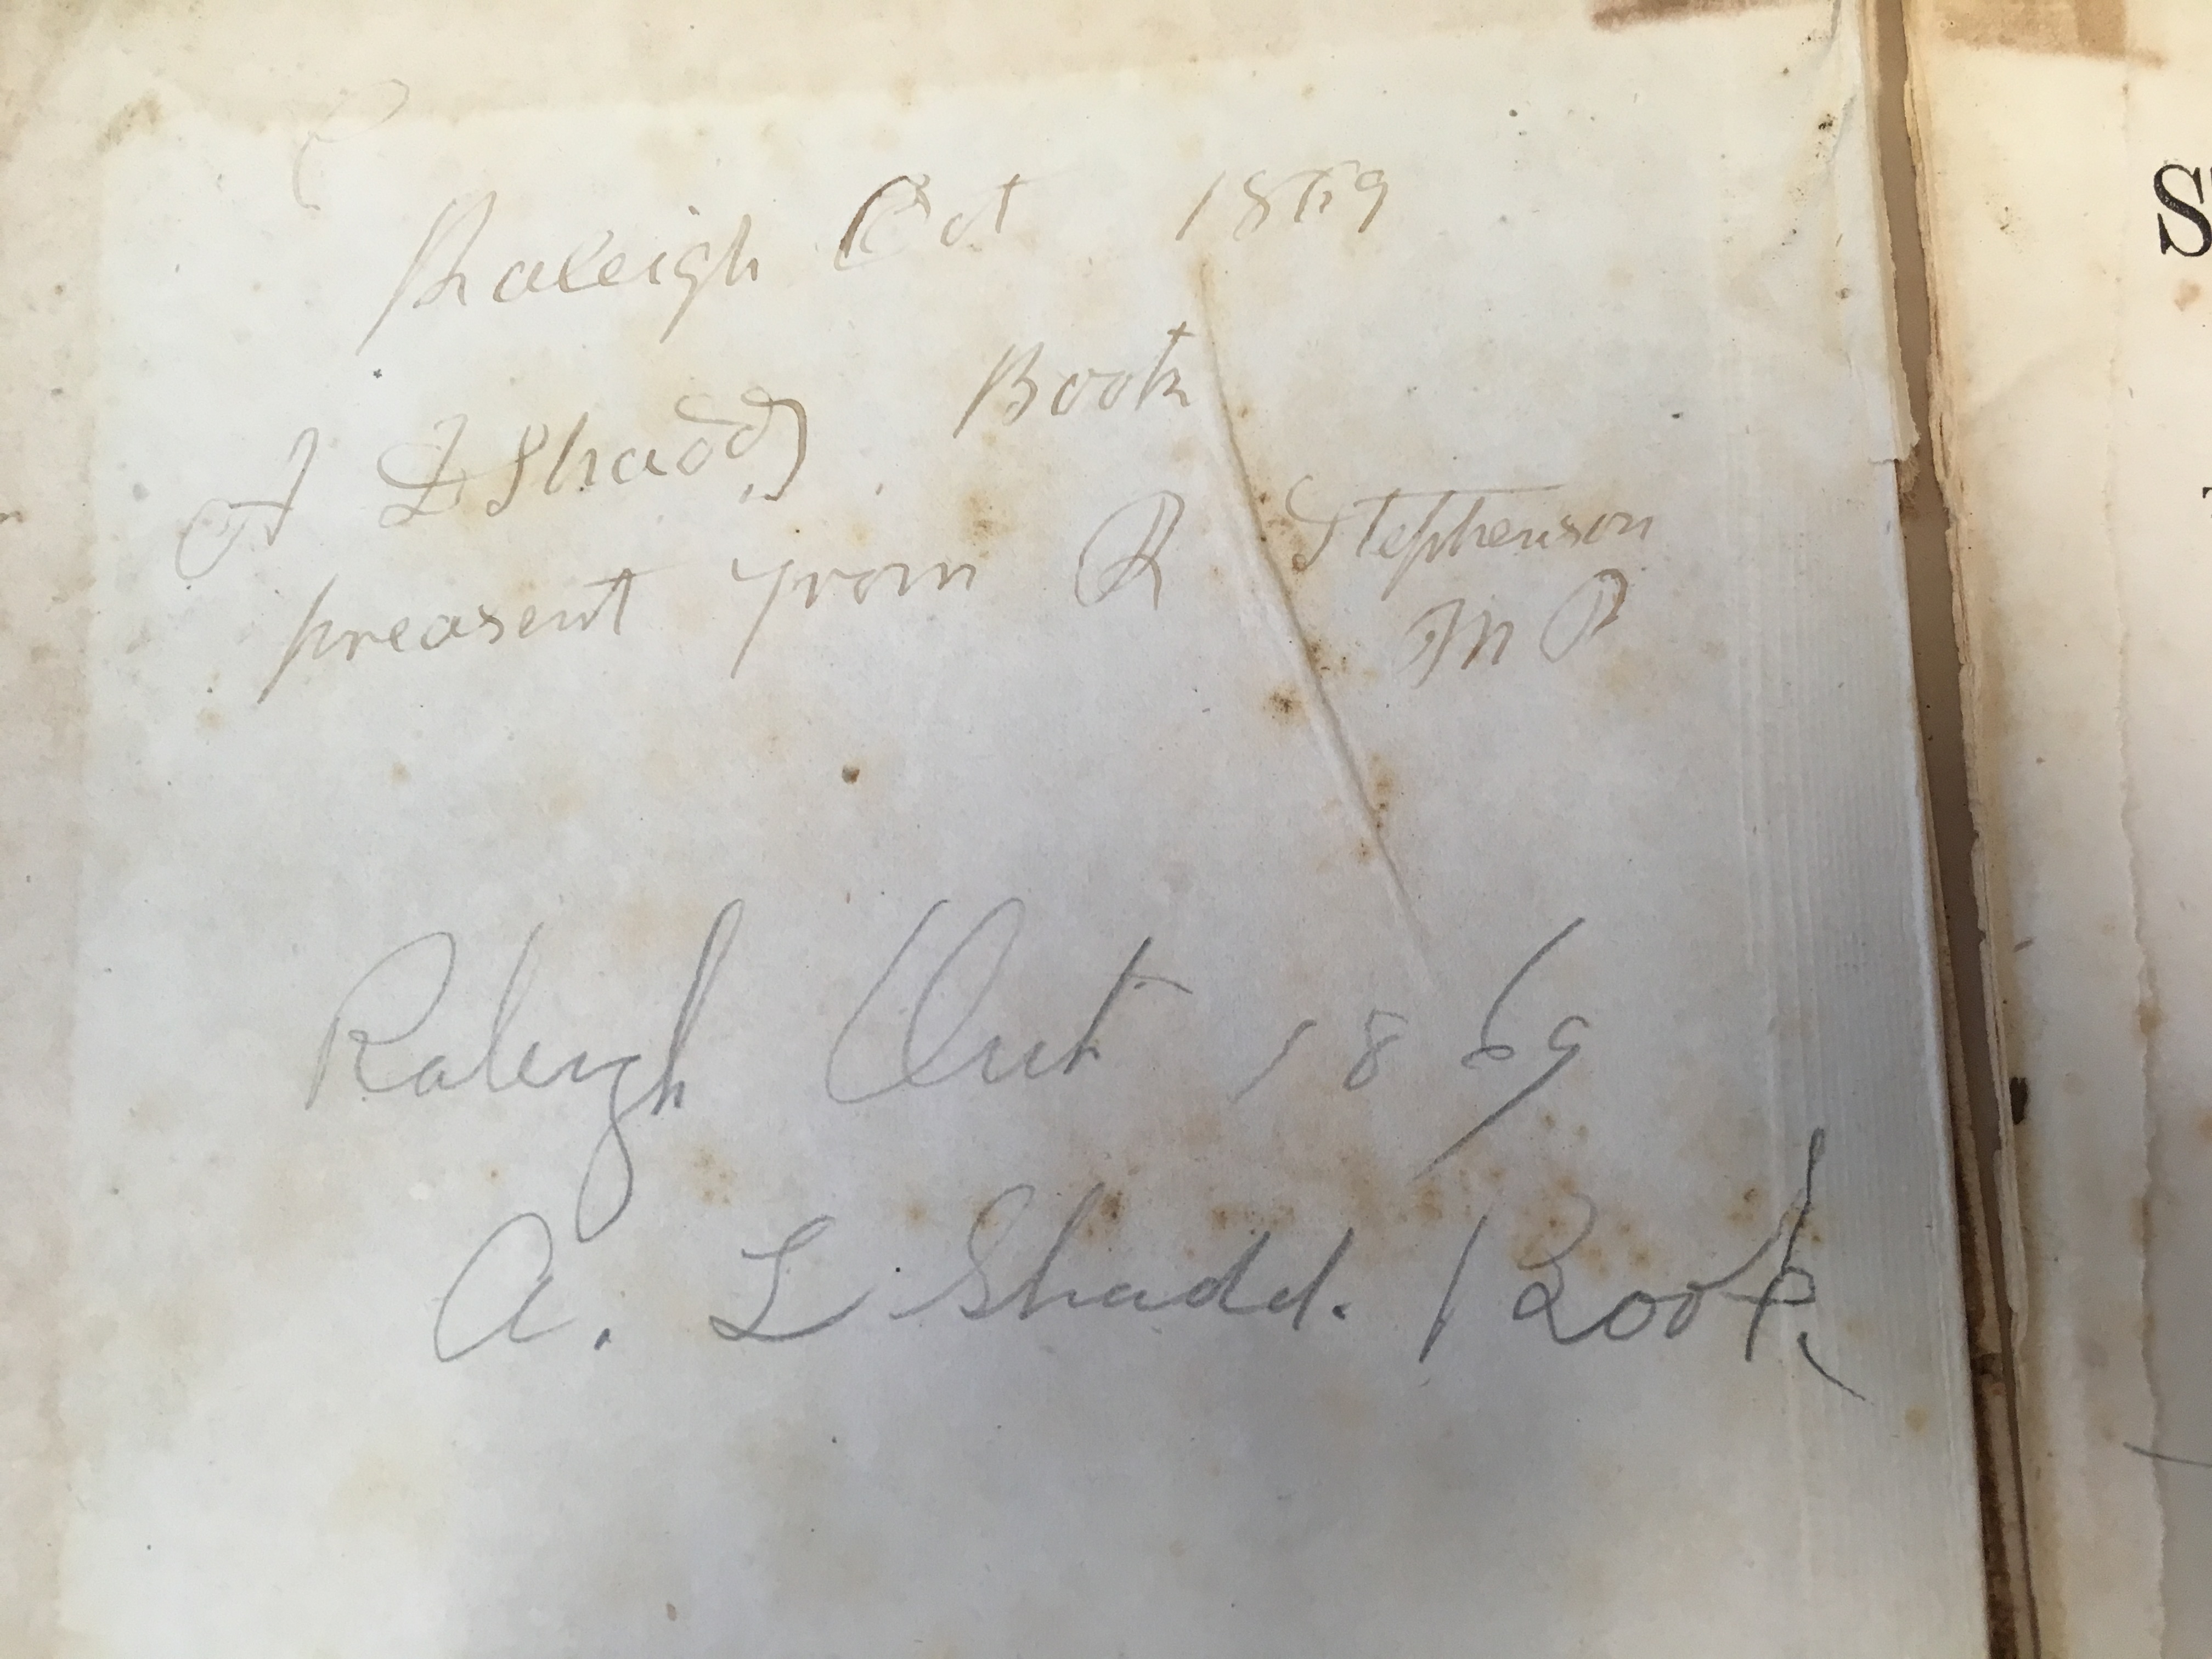 Raleigh Oct 1869
A L Shadd Book
preasent from R Stephenson
M P
Raleigh Ont 1869
A. L Shadd. Book.
S